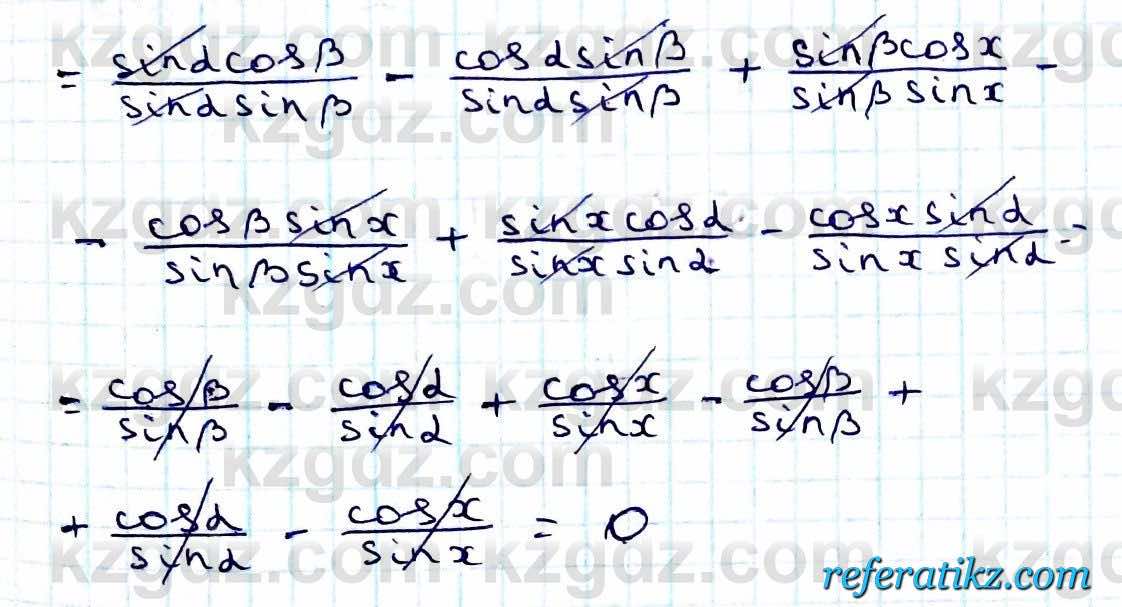 = sinα cosβ / sinα sinβ - cosα sinβ / sinα sinβ + sinβ cosx / sinβ sinx -
- cosβ sinx / sinβ sinx + sinx cosα / sinx sinα - cosx sinα / sinx sinα =
= cosβ / sinβ - cosα / sinα + cosx / sinx - cosβ / sinβ +
+ cosα / sinα - cosx / sinx = 0
kzgdz.com
referatikz.com